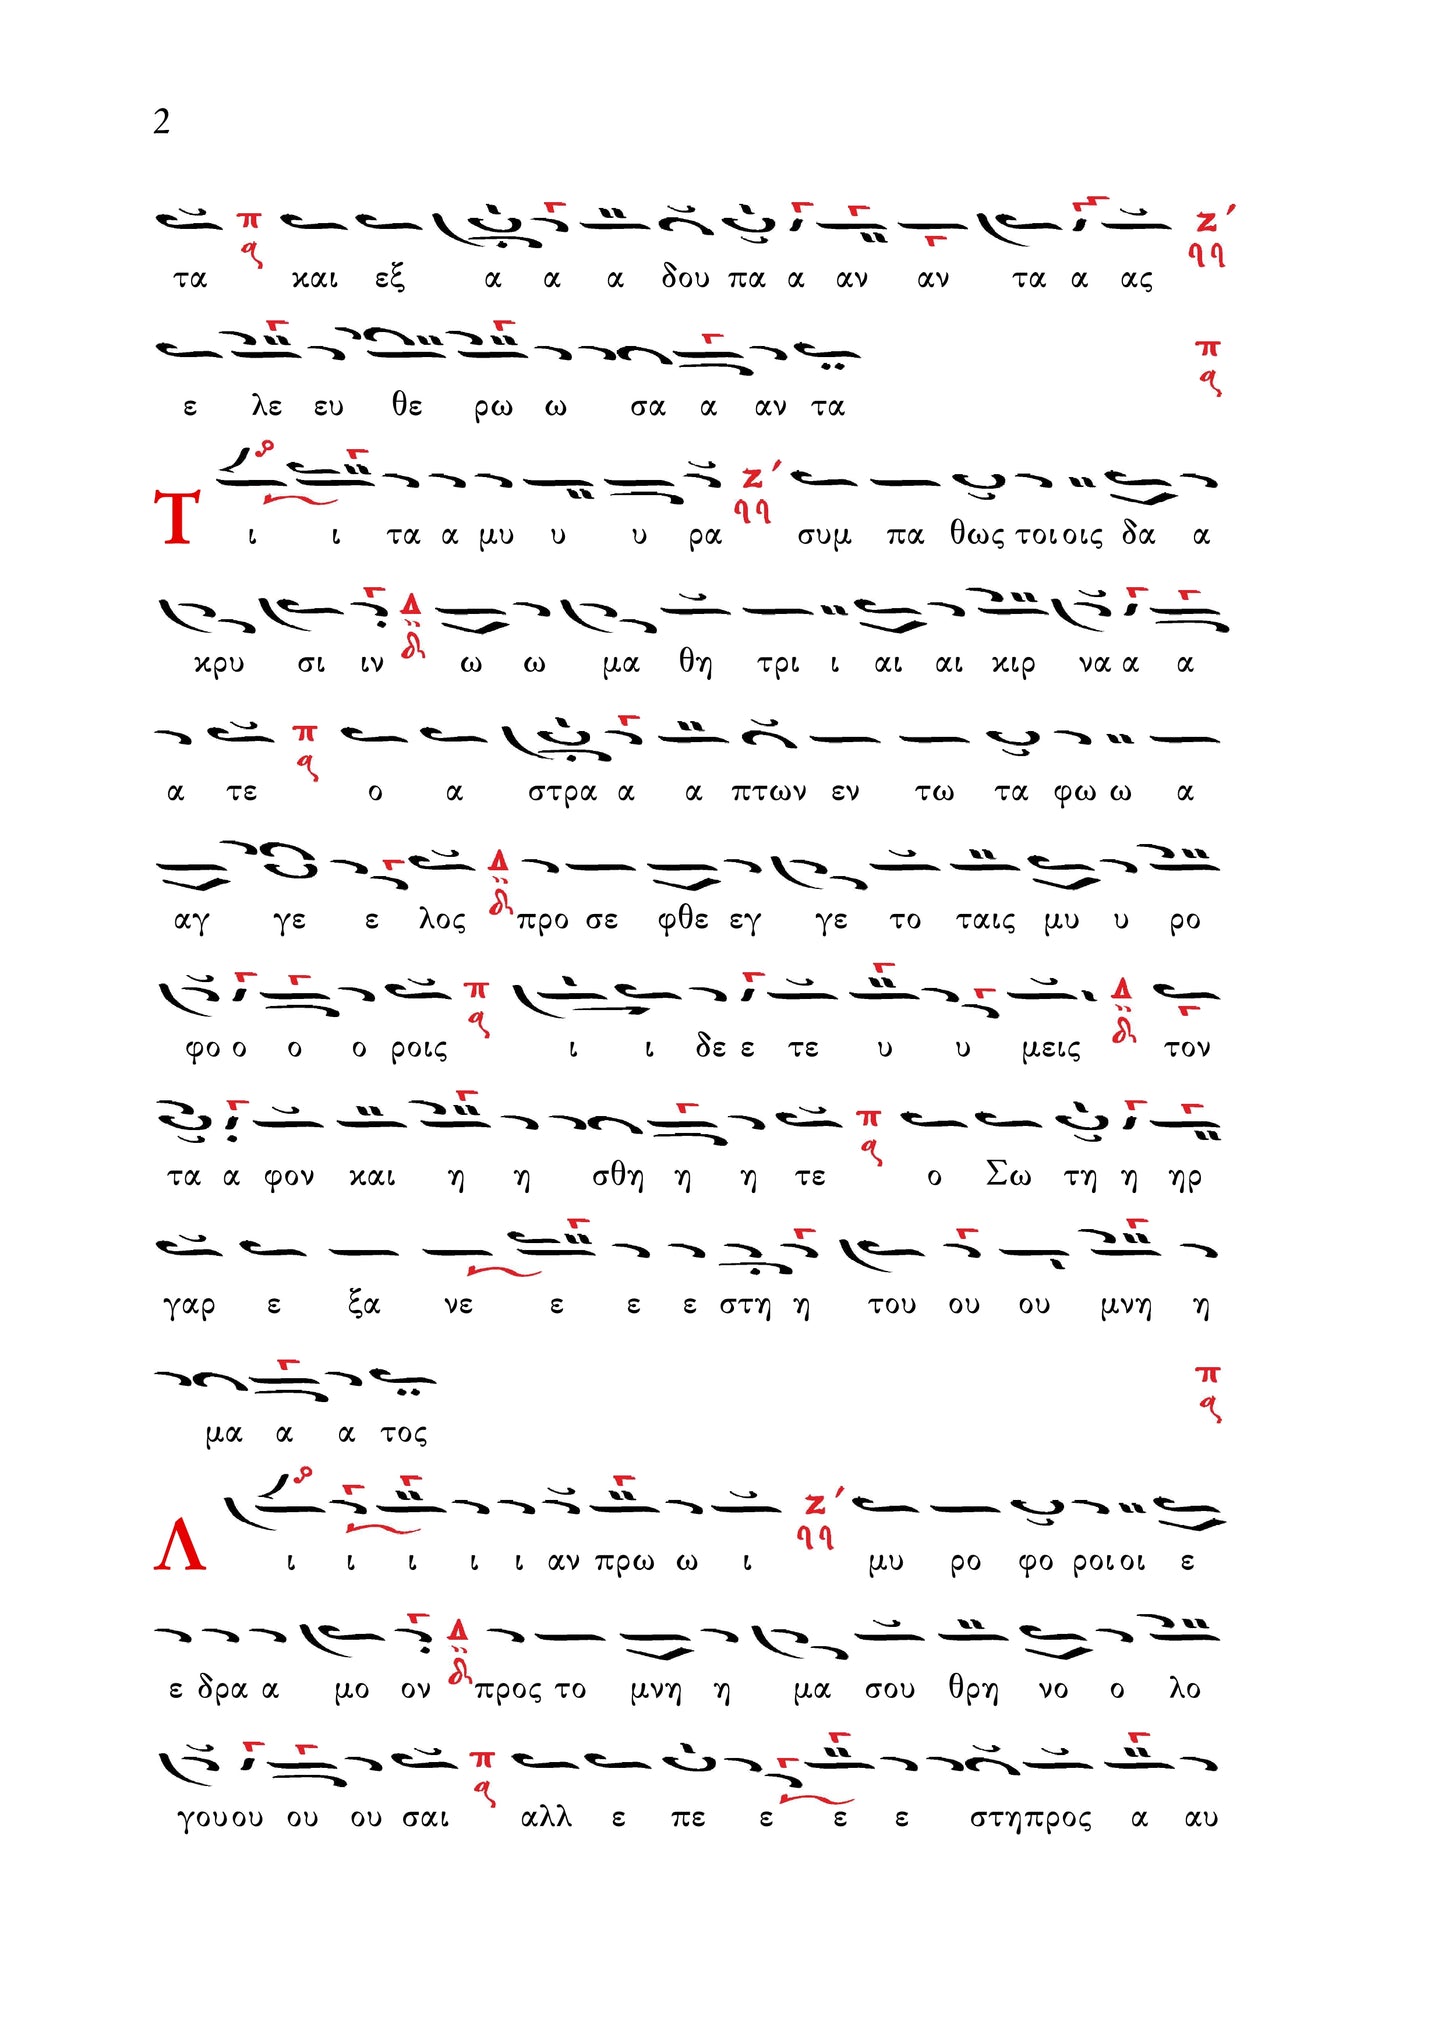 2
τα π α και εξ α α α δου πα α αν αν τα α ας Ζ΄
ε λε ευ θε ρω ω σα α αν τα π
Τ ι ι τα α μυ υ υ ρα Ζ΄ συμ πα θως τοι οις δα α
κρυ σι ιν Δ ω ω μα θη τρι ι αι αι κιρ να α α
α τε π ο α στρα α α πτων εν τω τα φω ω α
αγ γε ε λος Δ προ σε φθε εγ γε το ταις μυ υ ρο
φο ο ο ο ροις π ι ι δε ε τε υ υ μεις Δ τον
τα α φον και η η σθη η η τε π ο Σω τη η ηρ
γαρ ε ξα νε ε ε ε στη η του ου ου μνη η
μα α α τος π
Λ ι ι ι ι ι αν πρω ω ι Ζ΄ μυ ρο φο ροι οι ε
ε δρα α μο ον Δ προς το μνη η μα σου θρη νο ο λο
γου ου ου ου σαι π αλλ ε πε ε ε ε στη προς α αυ